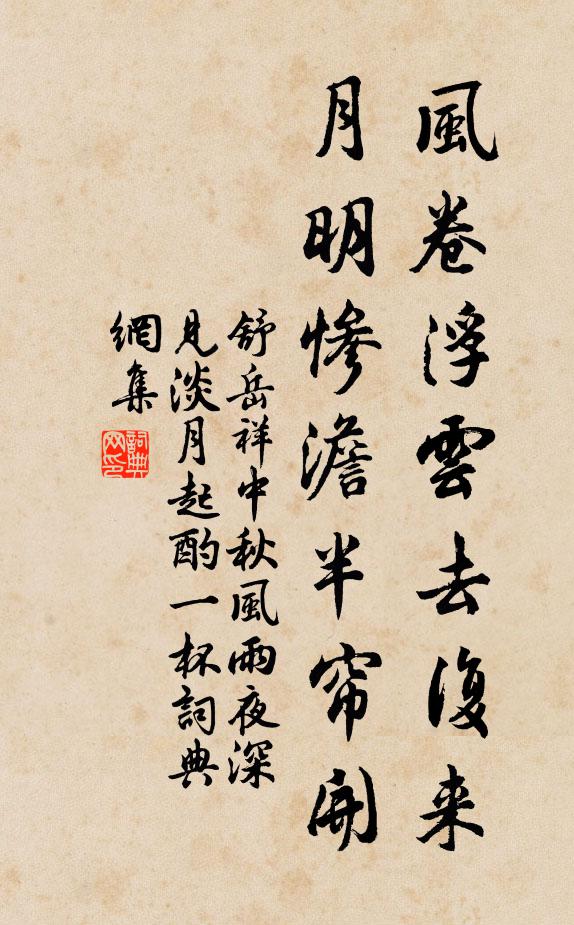 風卷浮雲去復来
月明慘澹半帘開
舒岳祥中秋風雨夜深
見淡月起酌一杯詞典
網集
詞典
网印